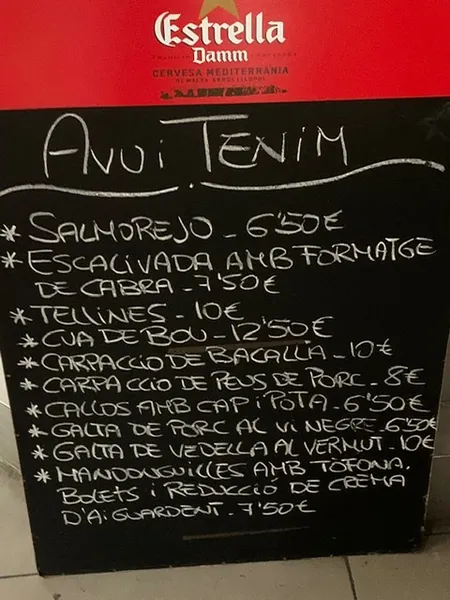 Estrella
Damm
CERVESA MEDITERRÀNIA
AVUI TENIM
* SALMOREJO - 6'50€
* ESCALIVADA AMB FORMATGE
DE CABRA - 7'50€
* TELLINES - 10€
* CUA DE BOU - 12'50€
* CARPACCIO DE BACALLÀ - 10€
* CARPACCIO DE PEUS DE PORC - 8€
* CALLOS AMB CAP i POTA - 6'50€
* GALTA DE PORC AL VI NEGRE - 6'50€
* GALTA DE VEDELLA AL VERMUT - 10€
* MANDONGUILLES AMB TÒFONA,
BOLETS i REDUCCIÓ DE CREMA
D'AiGUARDENT - 7'50€